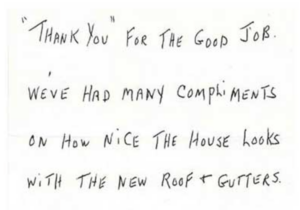 "THANK YOU" FOR THE GOOD JOB.
WE'VE HAD MANY COMPLiMENTS
ON HOW NiCE THE HOUSE LOOKS
WiTH THE NEW ROOF + GUTTERS.